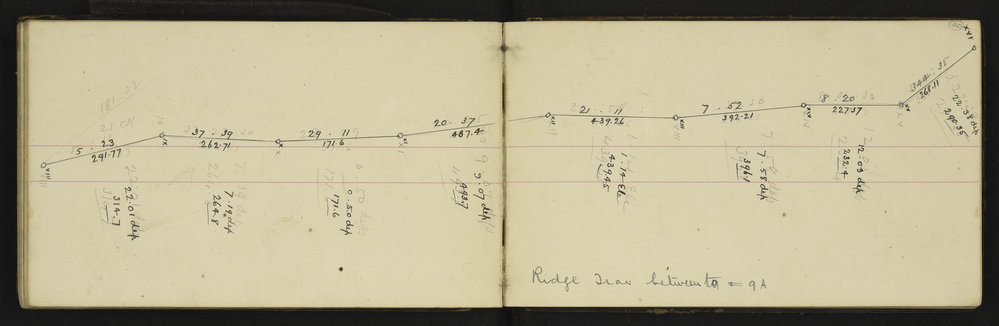 XVI
344 . 35
268.11
22.38 dep
290.35
XV
8 . 20
227.37
12.03 dep
232.4
XIV
7 . 52
392.21
7.58 dep
396.1
XIII
21 . 11
439.26
1.14 Ele
439.45
XII
20 . 37
487.4
9.07 dep
493.7
XI
29 . 11
171.6
0.50 dep
171.6
X
37 . 39
262.71
7.19 dep
264.8
IX
5 . 23
291.77
22.01 dep
314.7
VIII
Ridge Trav between 9 = 9A